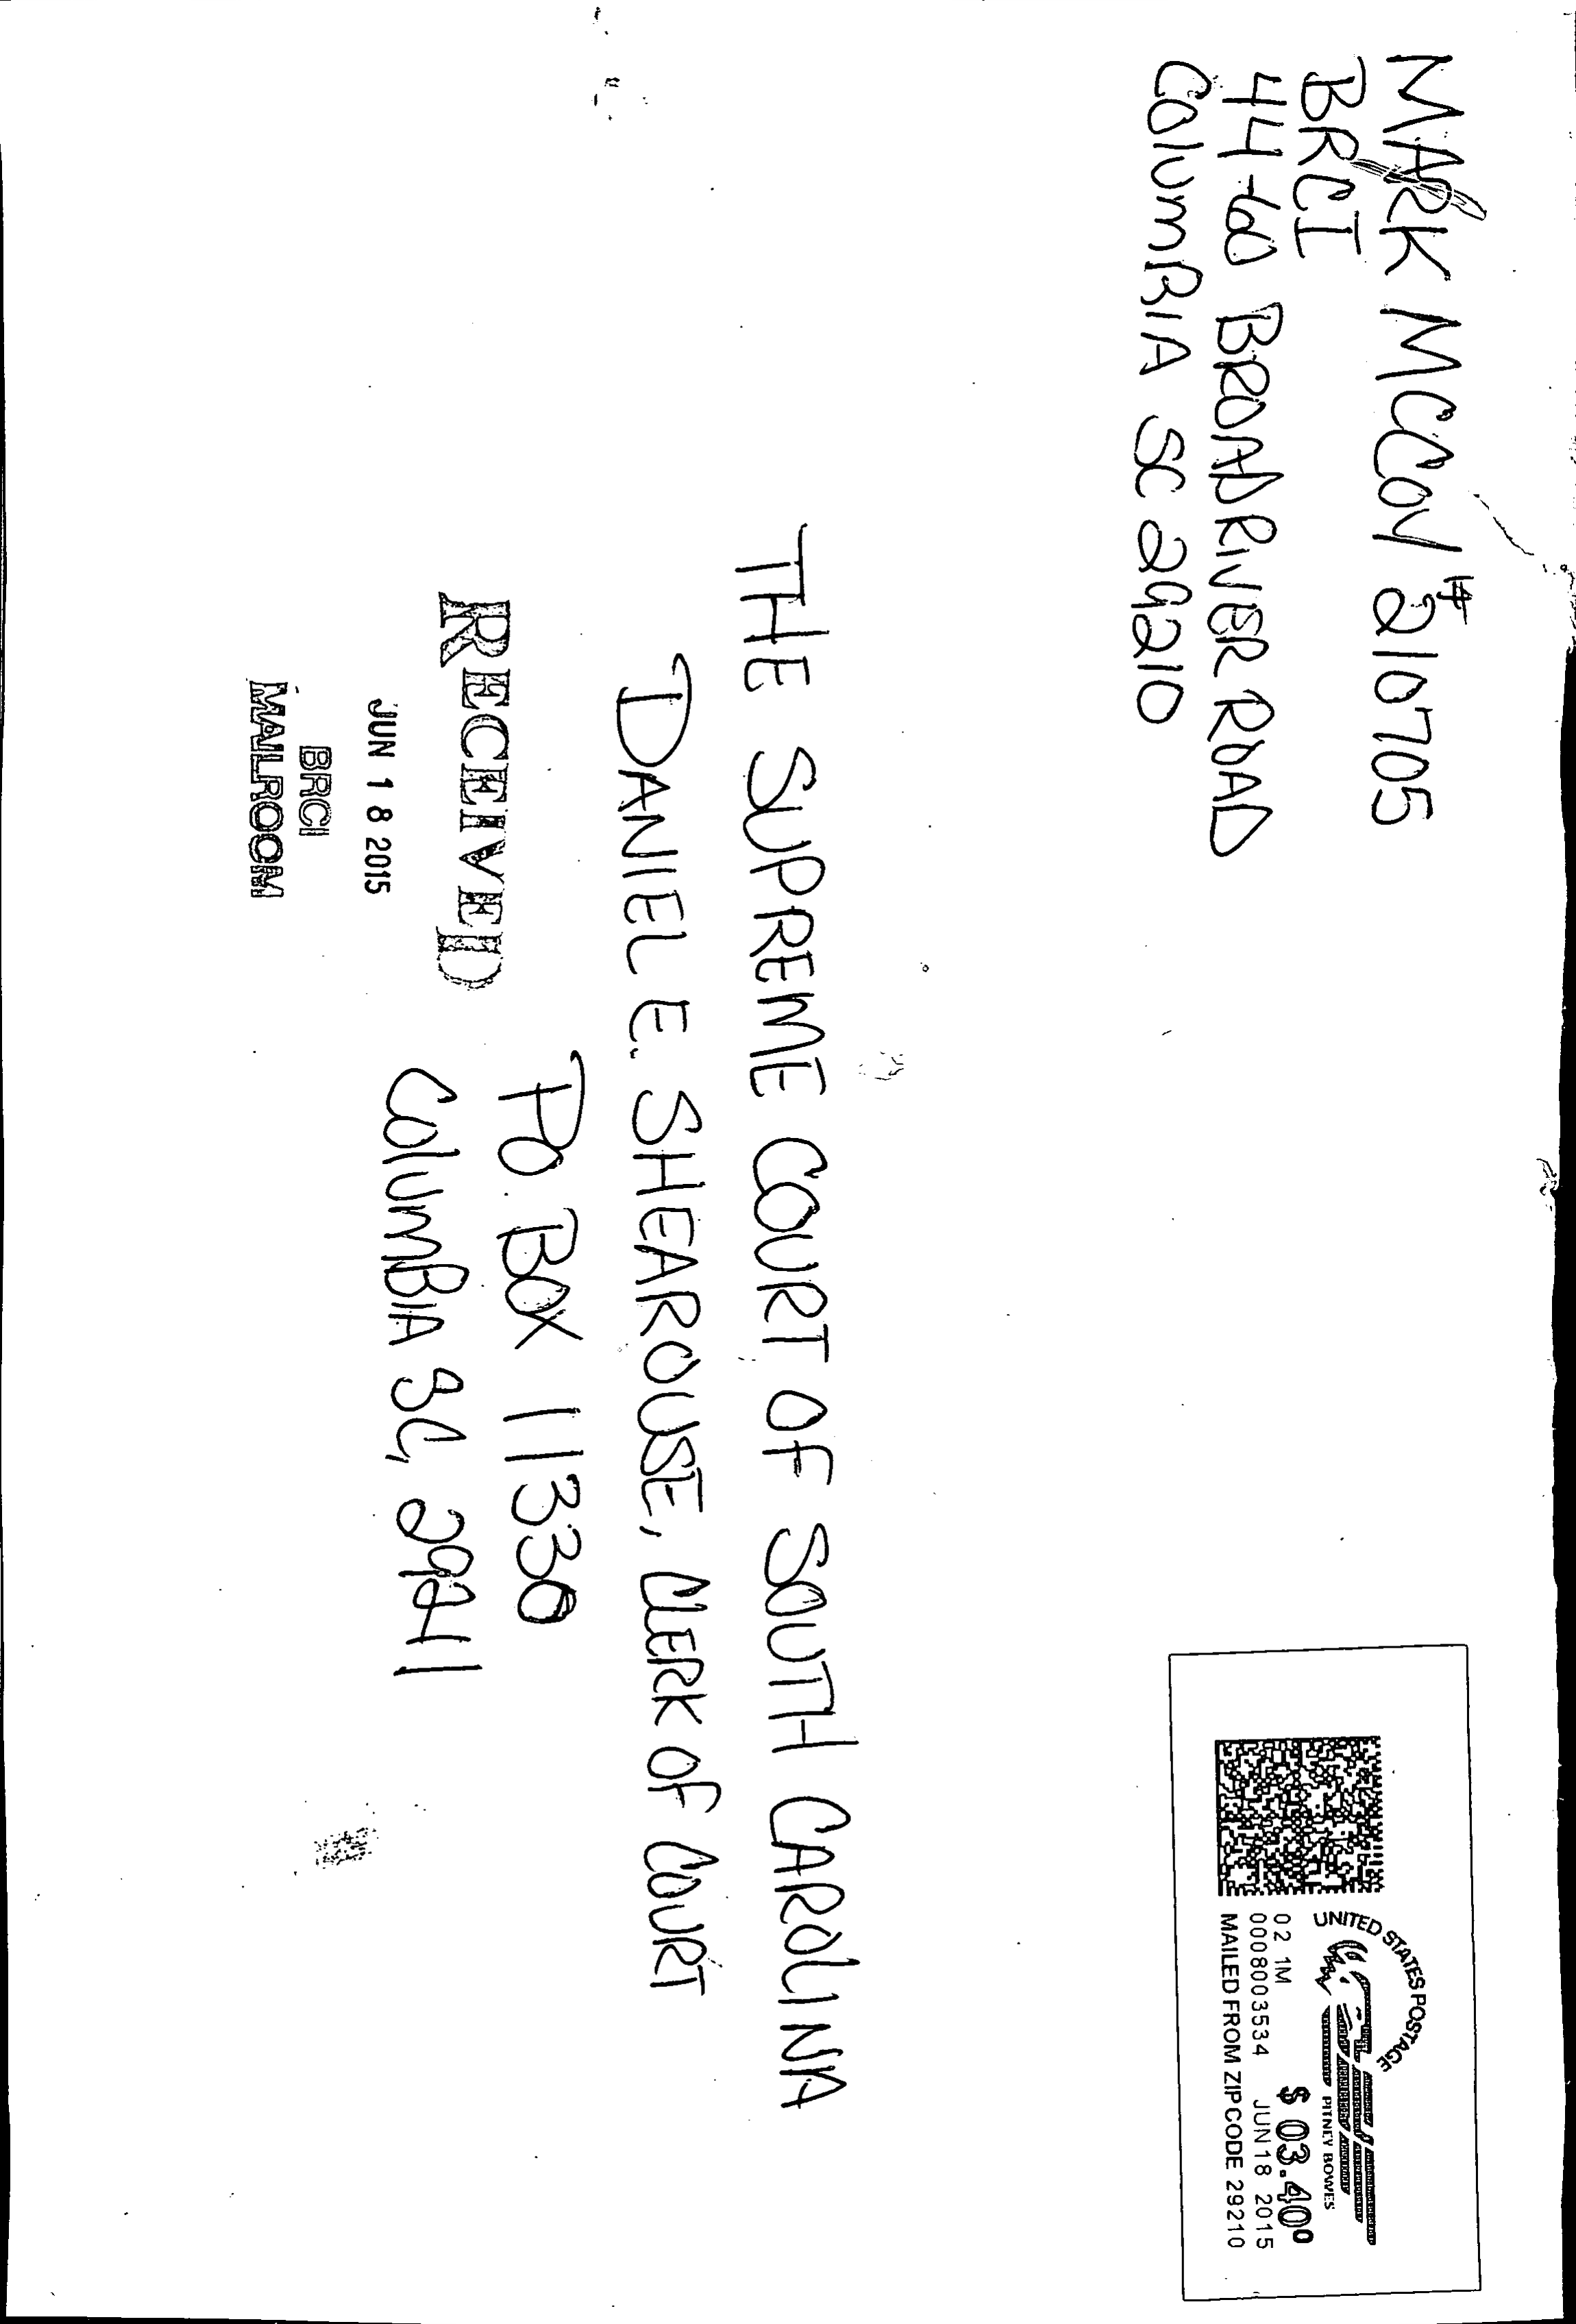 MARK MCCOY #210705
BRCI
44-60 BROAD RIVER ROAD
COLUMBIA SC 29210
UNITED STATES POSTAGE
PITNEY BOWES
02 1M
$ 03.40⁰
0008003534 JUN 18 2015
MAILED FROM ZIP CODE 29210
THE SUPREME COURT OF SOUTH CAROLINA
DANIEL E. SHEAROUSE, CLERK OF COURT
PO. BOX 11330
COLUMBIA SC, 29211
RECEIVED
JUN 18 2015
BRCI
MAILROOM